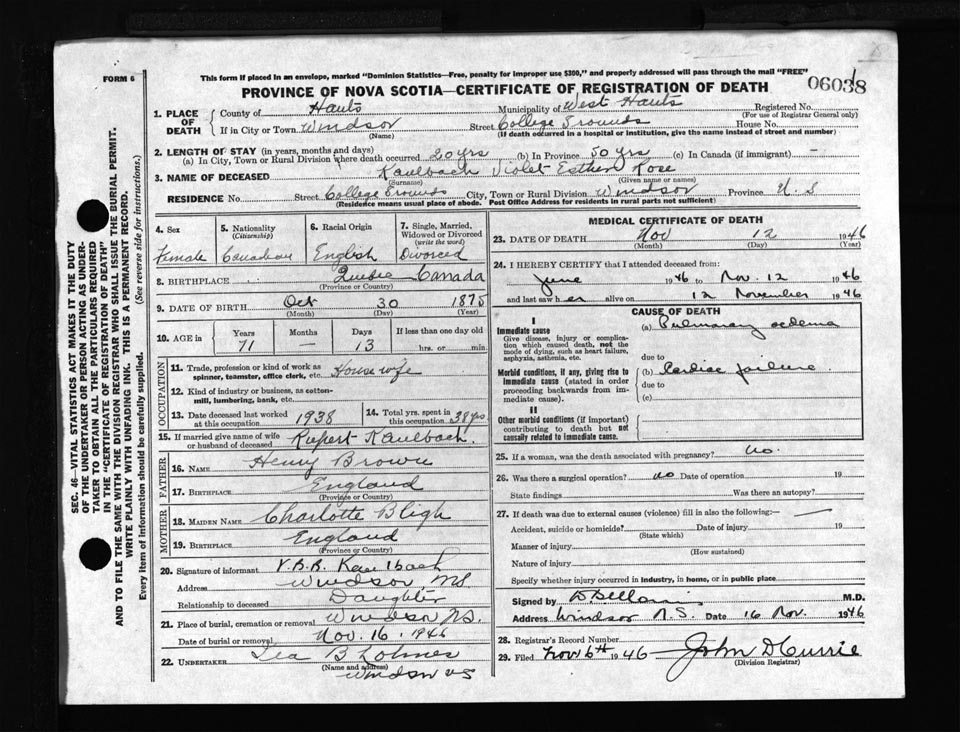 This form if placed in an envelope, marked "Dominion Statistics—Free, penalty for improper use $300," and properly addressed will pass through the mail "FREE"
FORM 6
06038
PROVINCE OF NOVA SCOTIA—CERTIFICATE OF REGISTRATION OF DEATH
1. PLACE OF DEATH
County of Hants Municipality of West Hants Registered No.
(For use of Registrar General only)
If in City or Town Windsor Street College Grounds House No.
(Name) (If death occurred in a hospital or institution, give the name instead of street and number)
2. LENGTH OF STAY (in years, months and days)
(a) In City, Town or Rural Division where death occurred 20 yrs (b) In Province 50 yrs (c) In Canada (if immigrant) —
3. NAME OF DECEASED Kaulbach Violet Esther Rose
(Surname) (Given name or names)
RESIDENCE No. Street College Grounds City, Town or Rural Division Windsor Province N. S
(Residence means usual place of abode. Post Office Address for residents in rural parts not sufficient)
SEC. 46—VITAL STATISTICS ACT MAKES IT THE DUTY
OF THE UNDERTAKER OR PERSON ACTING AS UNDER-
TAKER TO OBTAIN ALL THE PARTICULARS REQUIRED
IN THE "CERTIFICATE OF REGISTRATION OF DEATH"
AND TO FILE THE SAME WITH THE DIVISION REGISTRAR WHO SHALL ISSUE THE BURIAL PERMIT.
WRITE PLAINLY WITH UNFADING INK. THIS IS A PERMANENT RECORD.
Every item of information should be carefully supplied. (See reverse side for instructions.)
4. Sex
Female
5. Nationality
(Citizenship)
Canadian
6. Racial Origin
English
7. Single, Married,
Widowed or Divorced
(write the word)
Divorced
8. BIRTHPLACE Quebec Canada
(Province or Country)
9. DATE OF BIRTH Oct 30 1875
(Month) (Day) (Year)
10. AGE in Years Months Days If less than one day old
71 — 13 hrs. or min.
OCCUPATION
11. Trade, profession or kind of work as House wife
spinner, teamster, office clerk, etc.
12. Kind of industry or business, as cotton-
mill, lumbering, bank, etc.
13. Date deceased last worked
at this occupation 1938
14. Total yrs. spent in
this occupation 38 yrs.
15. If married give name of wife
or husband of deceased Rupert Kaulbach.
FATHER
16. NAME Henry Brown
17. BIRTHPLACE England
(Province or Country)
MOTHER
18. MAIDEN NAME Charlotte Bligh
19. BIRTHPLACE England
(Province or Country)
20. Signature of informant V.B.R. Kaulbach
Address Windsor NS
Relationship to deceased Daughter
21. Place of burial, cremation or removal Windsor NS.
Date of burial or removal Nov. 16. 1946
22. UNDERTAKER
(Name and address)
Windsor NS
MEDICAL CERTIFICATE OF DEATH
23. DATE OF DEATH Nov 12 1946
(Month) (Day) (Year)
24. I HEREBY CERTIFY that I attended deceased from:
June 1946 to Nov. 12 1946
and last saw her alive on 12 November 1946
CAUSE OF DEATH
I
Immediate cause (a) Pulmonary oedema
Give disease, injury or complica-
tion which caused death, not the
mode of dying, such as heart failure,
asphyxia, asthenia, etc.
due to
Morbid conditions, if any, giving rise to
immediate cause (stated in order
proceeding backwards from im-
mediate cause).
(b) Cardiac failure
due to
(c)
II
Other morbid conditions (if important)
contributing to death but not
causally related to immediate cause.
25. If a woman, was the death associated with pregnancy? no.
26. Was there a surgical operation? no Date of operation 19
State findings Was there an autopsy?
27. If death was due to external causes (violence) fill in also the following:— —
Accident, suicide or homicide? Date of injury 19
(State which)
Manner of injury
(How sustained)
Nature of injury
Specify whether injury occurred in industry, in home, or in public place
Signed by M.D.
Address Windsor N.S. Date 16 Nov. 1946
28. Registrar's Record Number
29. Filed Nov 1946 John D Currie
(Division Registrar)